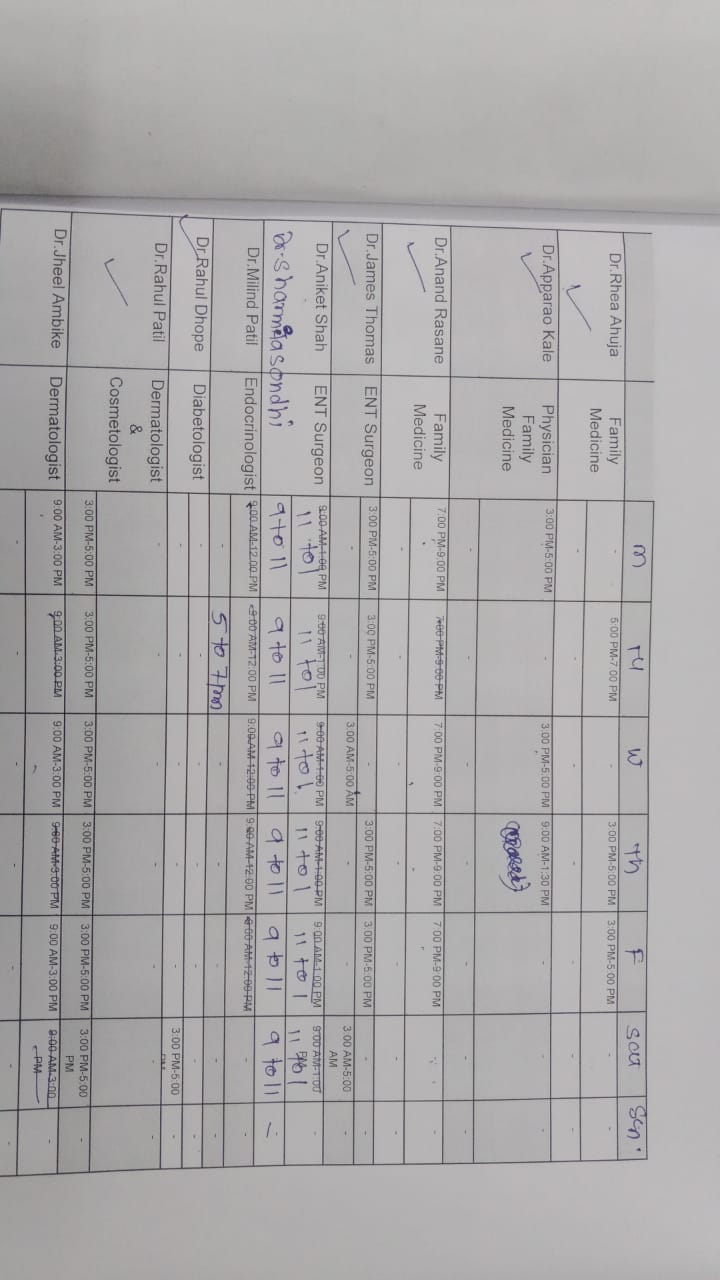 M TU W Th F Sat Sun.
Dr.Rhea Ahuja Family Medicine - 5:00 PM-7:00 PM - 3:00 PM-5:00 PM 3:00 PM-5:00 PM - -
- - - - - - -
Dr.Apparao Kale Physician Family Medicine 3:00 PM-5:00 PM - 3:00 PM-5:00 PM 9:00 AM-1:30 PM - - -
- - - - - - -
Dr.Anand Rasane Family Medicine 7:00 PM-9:00 PM 7:00 PM-9:00 PM 7:00 PM-9:00 PM 7:00 PM-9:00 PM 7:00 PM-9:00 PM - -
- - - - - - -
Dr.James Thomas ENT Surgeon 3:00 PM-5:00 PM 3:00 PM-5:00 PM - 3:00 PM-5:00 PM 3:00 PM-5:00 PM - -
- - 3:00 AM-5:00 AM - - 3:00 AM-5:00 AM -
Dr.Aniket Shah ENT Surgeon 9:00 AM-1:00 PM 9:00 AM-1:00 PM 9:00 AM-1:00 PM 9:00 AM-1:00 PM 9:00 AM-1:00 PM 9:00 AM-1:00 PM -
11 to 1 11 to 1 11 to 1 11 to 1 11 to 1 11 to 1
Dr. Sharmila Sondhi 9 to 11 9 to 11 9 to 11 9 to 11 9 to 11 9 to 11 -
Dr.Milind Patil Endocrinologist 9:00 AM-12:00 PM 9:00 AM-12:00 PM 9:00 AM-12:00 PM 9:00 AM-12:00 PM 9:00 AM-12:00 PM - -
- 5 to 7 pm - - - - -
Dr.Rahul Dhope Diabetologist - - - - - - -
- - - - - 3:00 PM-5:00 PM -
Dr.Rahul Patil Dermatologist & Cosmetologist - - - - - - -
3:00 PM-5:00 PM 3:00 PM-5:00 PM 3:00 PM-5:00 PM 3:00 PM-5:00 PM 3:00 PM-5:00 PM 3:00 PM-5:00 PM -
Dr.Jheel Ambike Dermatologist 9:00 AM-3:00 PM 9:00 AM-3:00 PM 9:00 AM-3:00 PM 9:00 AM-3:00 PM 9:00 AM-3:00 PM 9:00 AM-3:00 PM -
- - - - - - -